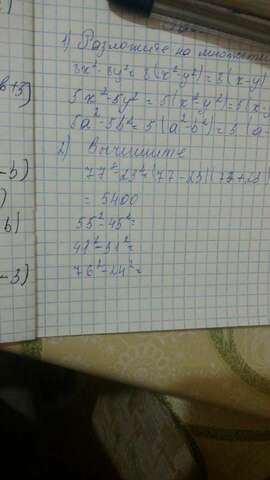 в+3)
1) Разложите на множители
8x²-8y²=8(x²-y²)=8(x-y)
5x²-5y²=5(x²-y²)=5(x
5a²-5b²=5(a²-b²)=5(a
2) Вычислите
-b)
77²-23²=(77-23)(77+23)
= 5400
-b)
55²-45²=
41²-31²=
-3)
76²-24²=